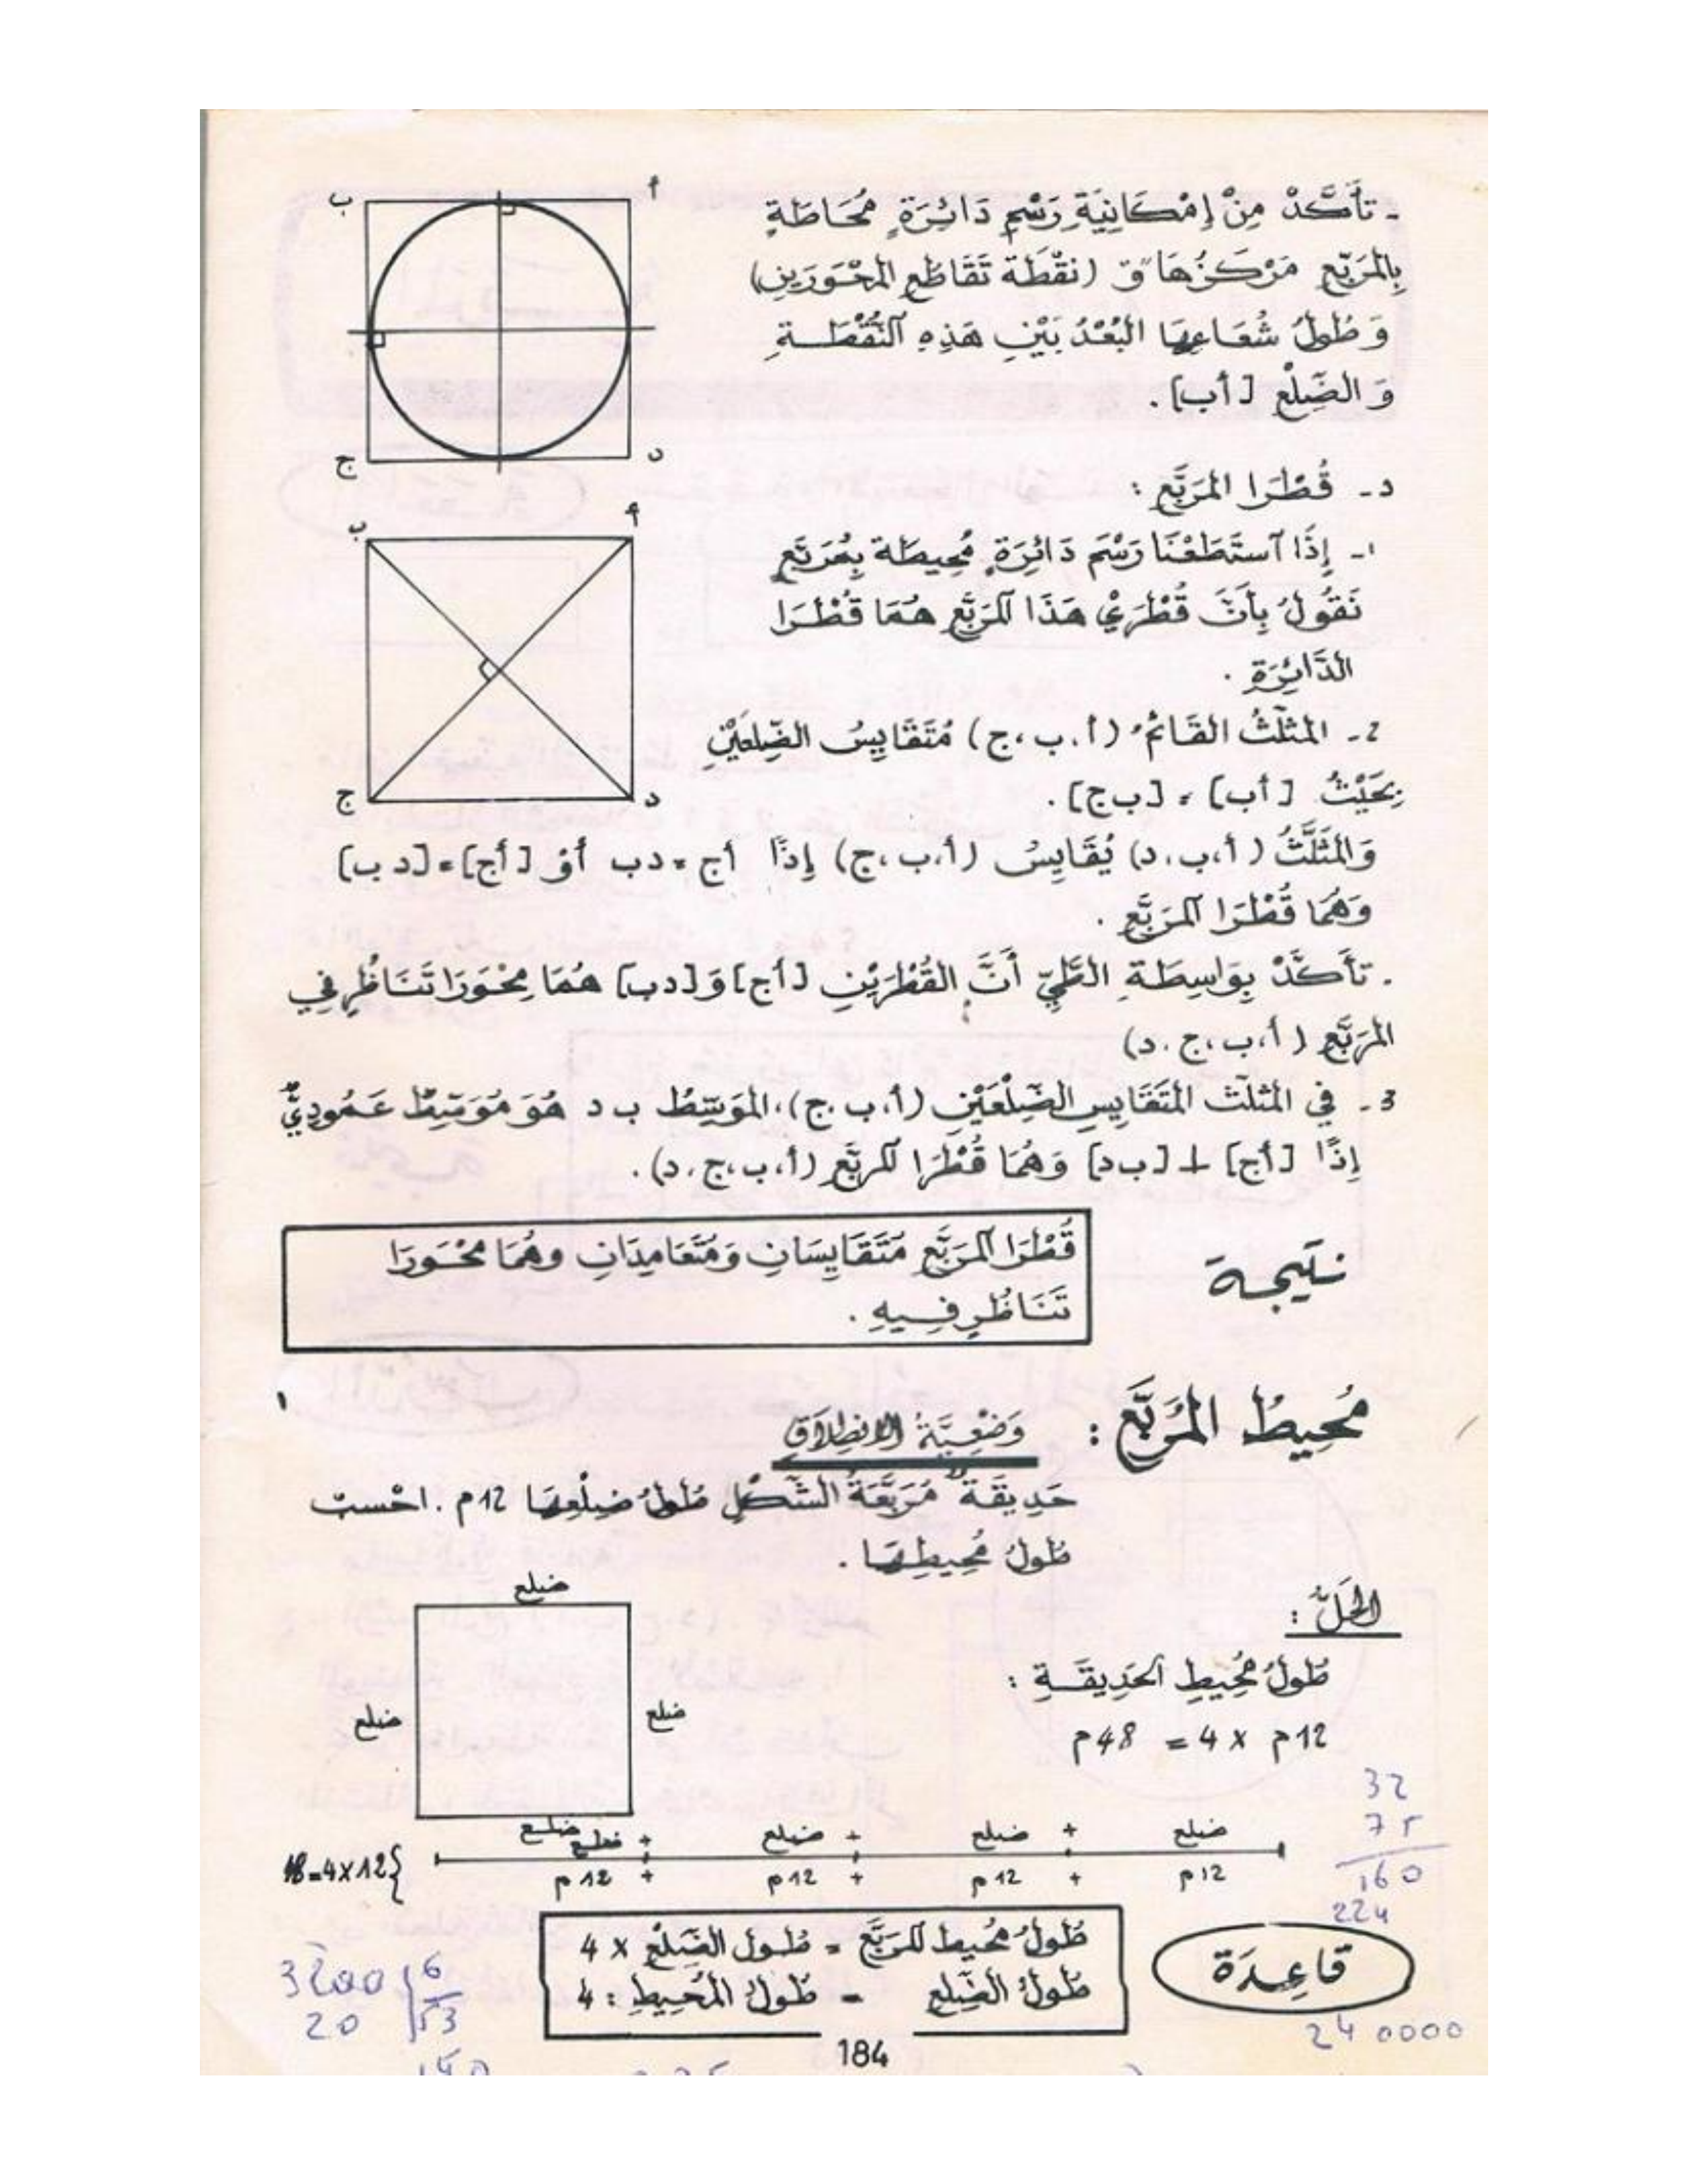 - تَأَكَّدْ مِنْ إِمْكَانِيَةِ رَسْمِ دَائِرَةٍ مُحَاطَةٍ
بِالمُرَبَّعِ مَرْكَزُهَا "ق" (نقْطَة تَقَاطُعِ المِحْوَرَيْنِ)
وَ طُولُ شُعَاعِهَا البُعْدُ بَيْنِ هَذِهِ النُّقْطَةِ
وَ الضِّلْعِ [أب].
ب
أ
ج
د
د - قُطْرَا المُرَبَّعِ :
1- إِذَا آستَطَعْنَا رَسْمَ دَائِرَةٍ مُحِيطَة بِمُرَبَّعٍ
نَقُولُ بِأَنَّ قُطْرَيْ هَذَا المُرَبَّعِ هُمَا قُطْرَا
الدَّائِرَةِ .
ب
أ
ج
د
2- المثلَّثُ القَائمُ (أ،ب،ج) مُتَقَايِسُ الضّلعَيْنِ
بِحَيْثُ [أب] = [ب ج].
وَالمُثَلَّثُ (أ،ب،د) يُقَايِسُ (أ،ب،ج) إِذًا أج = دب أوْ [أج] = [د ب]
وَهُمَا قُطْرَا المُرَبَّعِ .
. تَأَكَّدْ بِوَاسِطَةِ الطَّيِّ أَنَّ القُطْرَيْنِ [أج] وَ [دب] هُمَا مِحْوَرَا تَنَاظُرٍ فِي
المُرَبَّعِ (أ،ب،ج،د)
3- فِي المُثلّث المُتَقَايِسِ الضِّلْعَيْنِ (أ،ب،ج)، المُوَسِّطُ ب د هُوَ مُوَسِّطٌ عَمُودِيٌّ
إِذًا [أج] ⊥ [ب د] وَهُمَا قُطْرَا المُرَبَّعِ (أ،ب،ج،د).
نتيجة
قُطْرَا المُرَبَّعِ مُتَقَايِسَانِ وَمُتَعَامِدَانِ وهُمَا مِحْوَرَا
تَنَاظُرٍ فِيهِ .
مُحِيطُ المُرَبَّعِ :
وَضْعِيَّةُ الانطِلاَقِ
حَدِيقَةٌ مُرَبَّعَةُ الشَّكْلِ طُولُ ضِلْعِهَا 12م . احْسبْ
طُولُ مُحِيطِهَا .
الحَلُّ :
طُولُ مُحِيطِ الحَدِيقَةِ :
12م × 4 = 48م
ضلع
ضلع
ضلع
ضلع
ضلع + ضلع + ضلع + ضلع
12م + 12م + 12م + 12م
{12×4=48
32
75
160
224
240000
3200 6
20 53
قَاعِدَة
طُولُ مُحِيط المُرَبَّعِ = طُول الضِّلْعِ × 4
طُولُ الضِّلعِ = طُولُ المُحِيطِ : 4
184